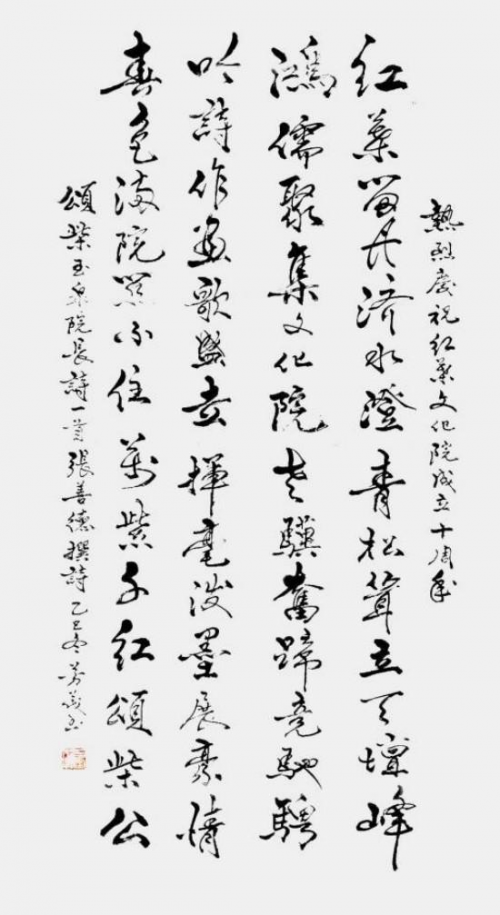 熱烈慶祝紅葉文化院成立十周年
紅葉留丹济水澄青松聳立天壇峰
鴻儒聚集文化院老驥奮蹄竞馳騁
吟詩作畫歌盛世揮毫潑墨展豪情
春色滿院關不住萬紫千紅頌柴公
頌柴玉泉院長詩一首張善德撰詩乙巳冬芳书